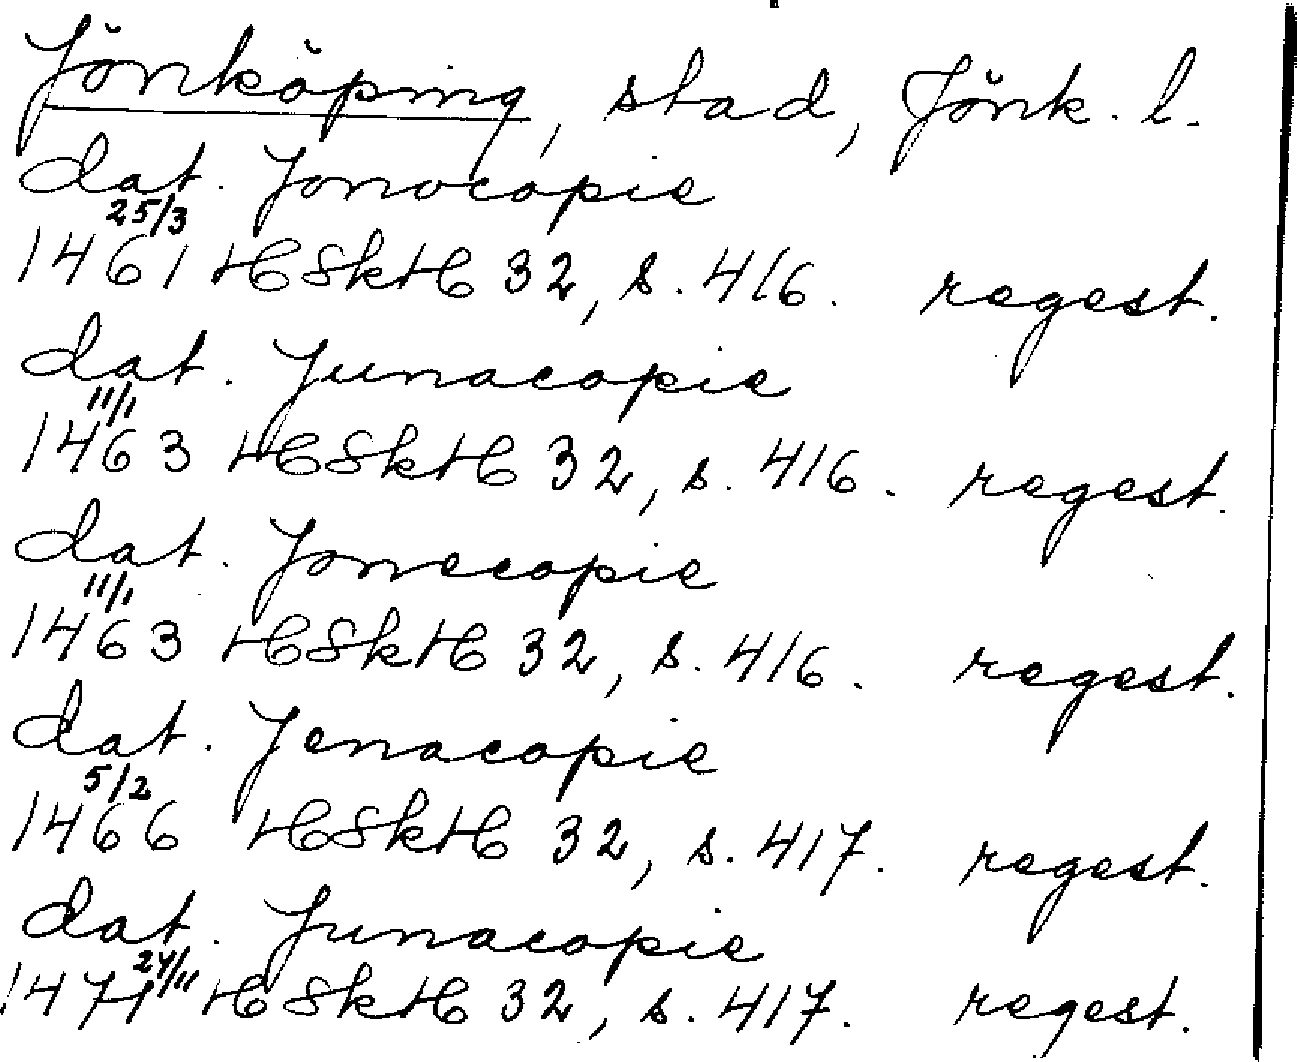 Jönköping, stad, Jönk. l.
dat. Jonocopie
25/3
1461 HSkH 32, s. 416. regest.
dat. Junacopie
11/1
1463 HSkH 32, s. 416. regest.
dat. Jonecopie
11/1
1463 HSkH 32, s. 416. regest.
dat. Jenacopie
5/2
1466 HSkH 32, s. 417. regest.
dat. Junacopie
24/11
1471 HSkH 32, s. 417. regest.